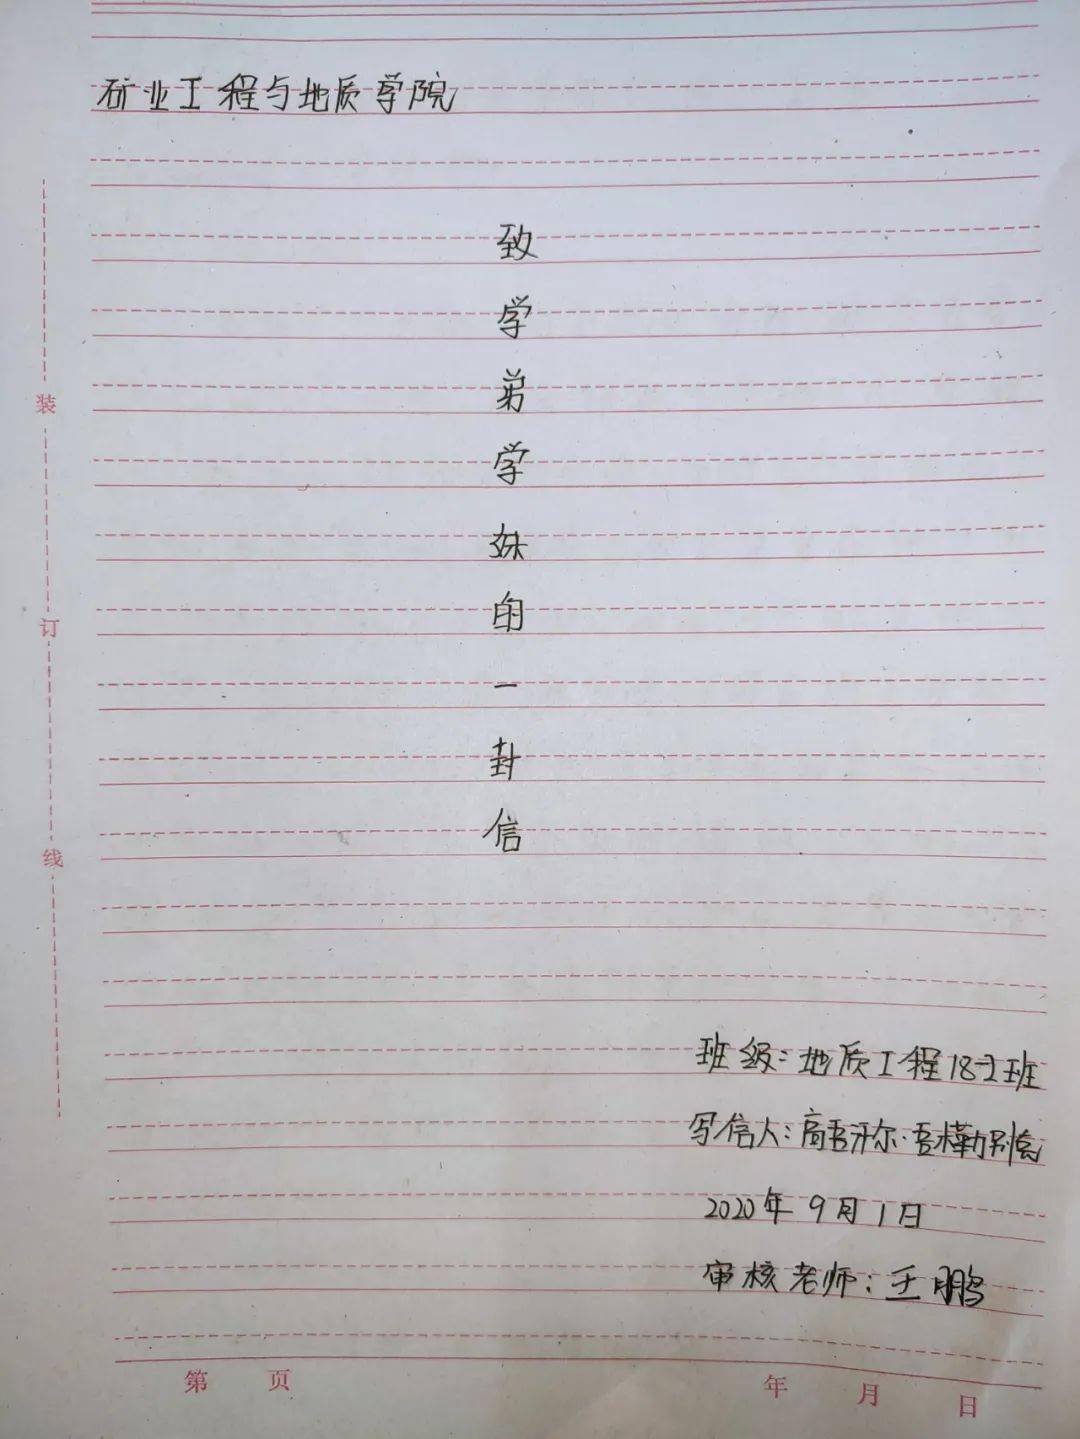 矿业工程与地质学院
致
学
弟
学
妹
的
一
封
信
装
订
线
班级：地质工程18-2班
写信人：高吾汗尔·吾木勒别克
2020年9月1日
审核老师：王鹏
第 页 年 月 日